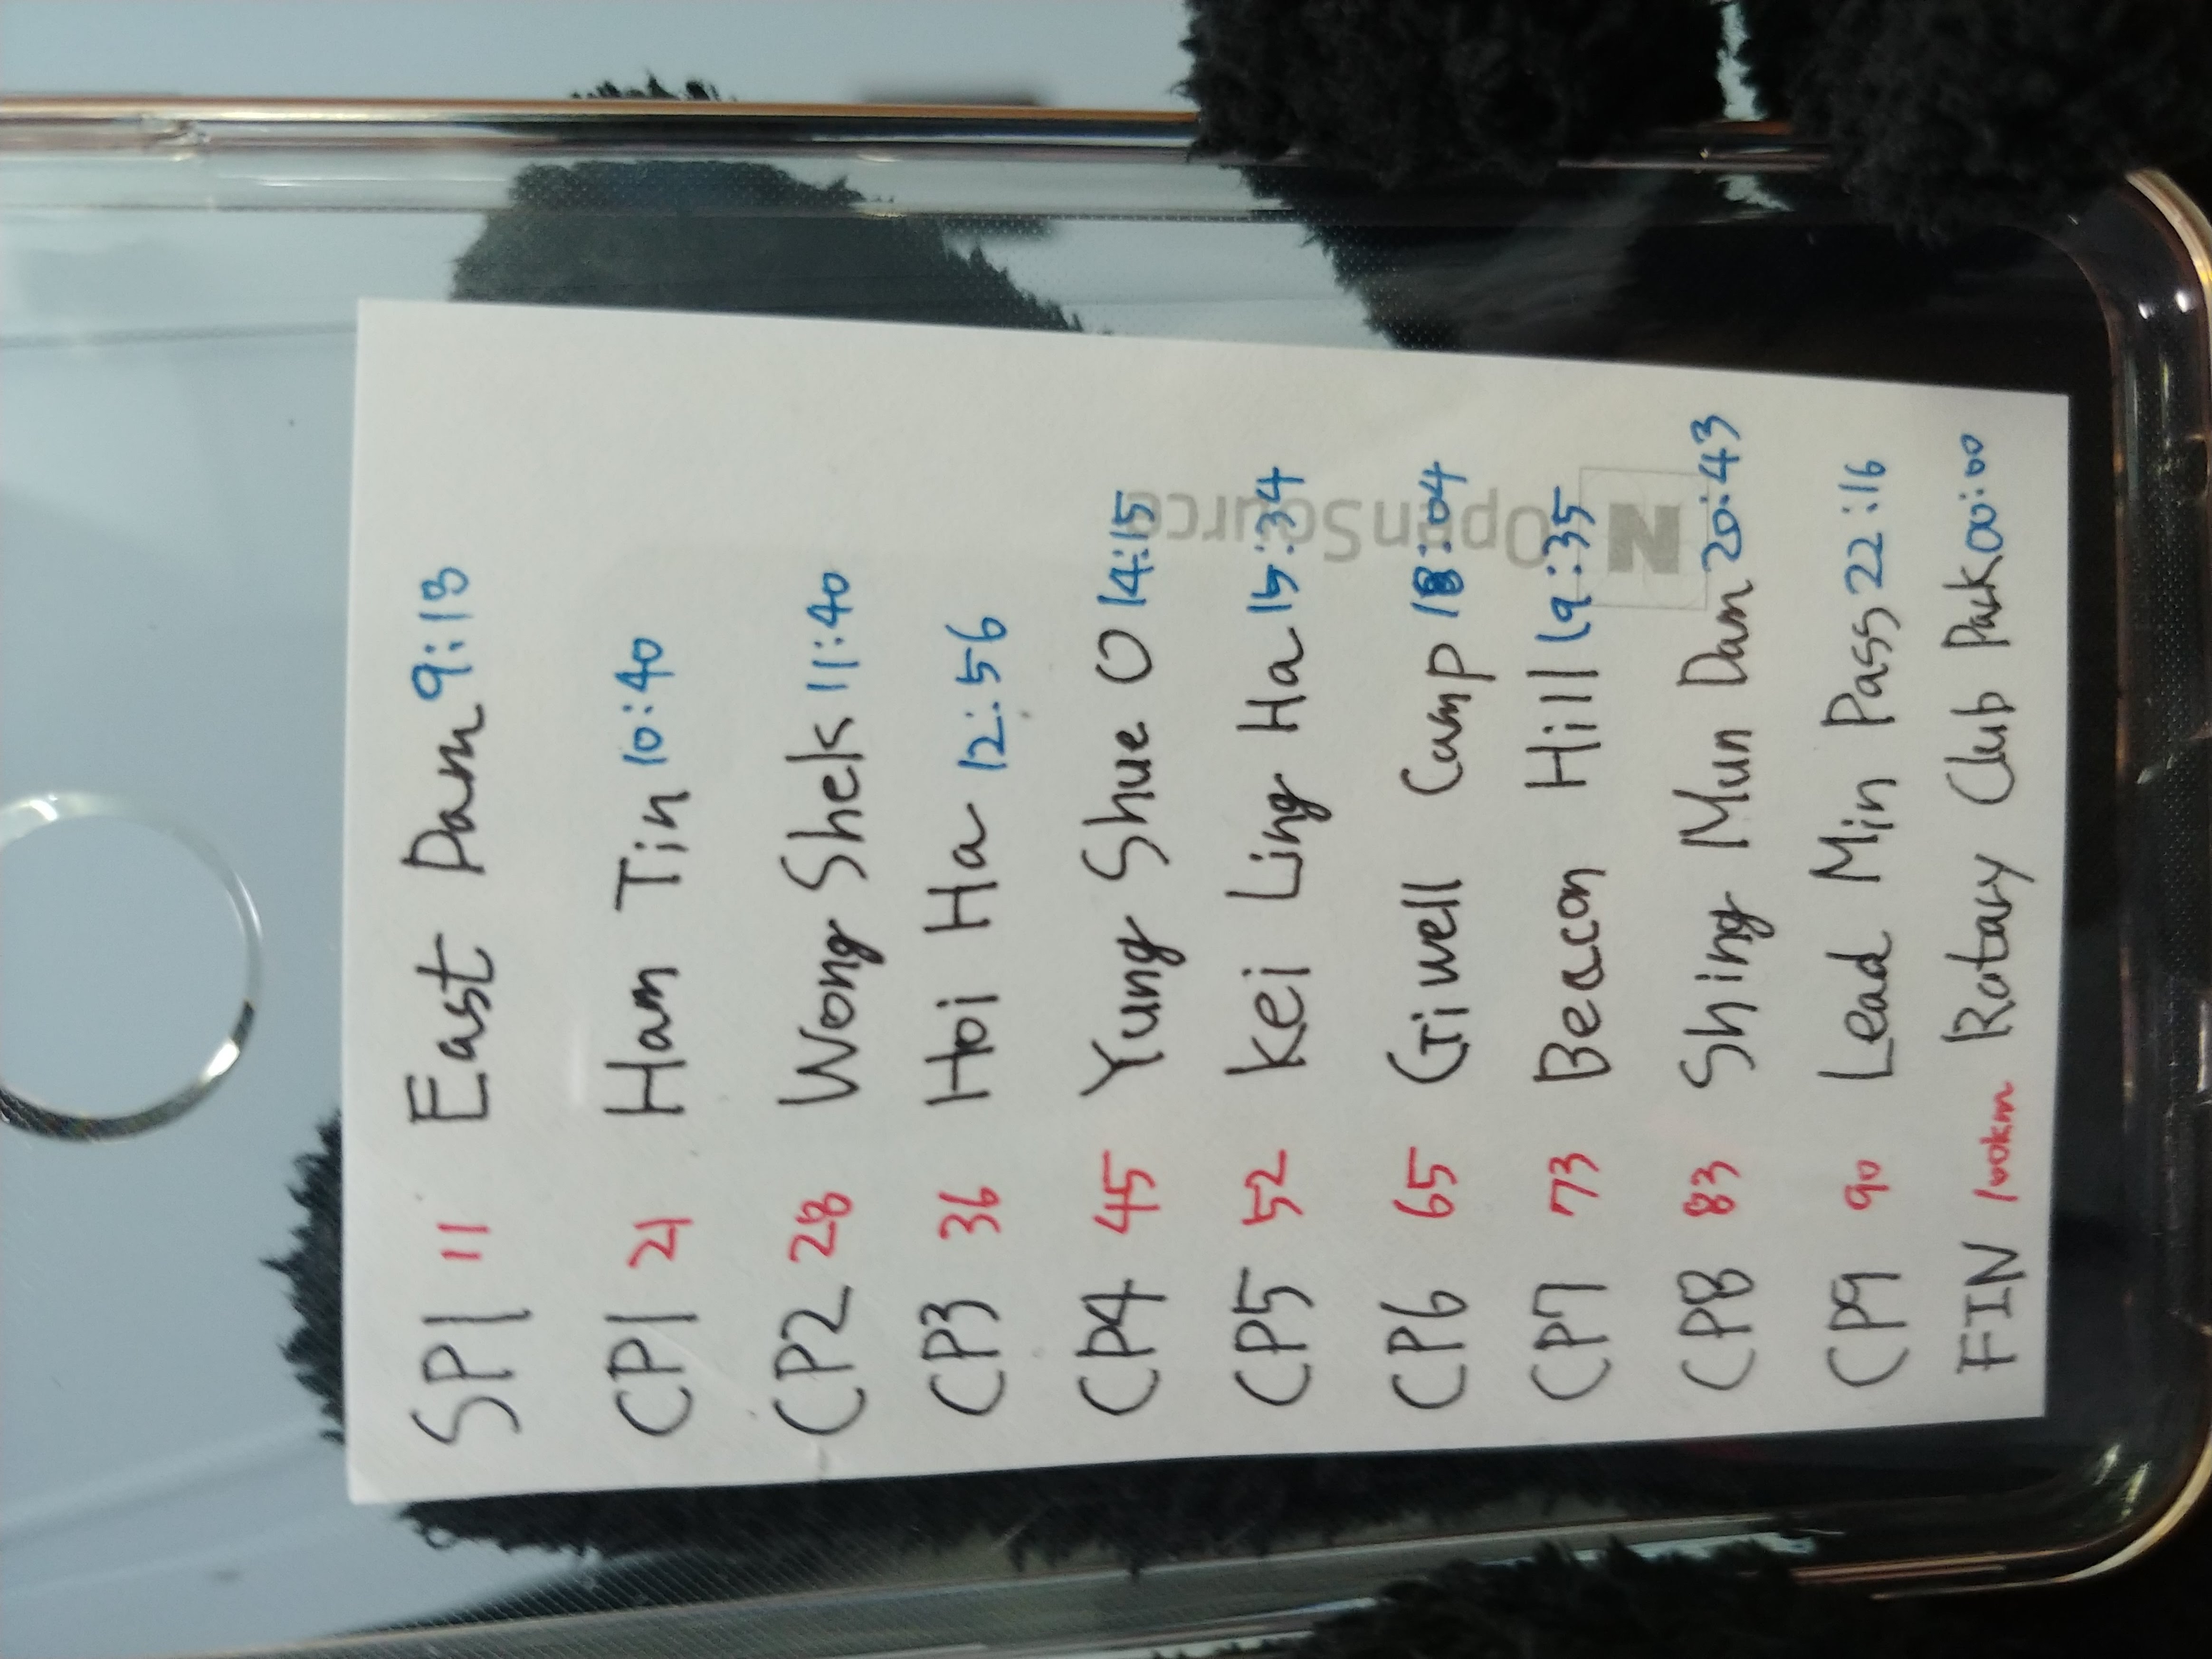 SP1 11 East Dam 9:13
CP1 21 Ham Tin 10:40
CP2 28 Wong Shek 11:40
CP3 36 Hoi Ha 12:56
CP4 45 Yung Shue O 14:15
CP5 52 Kei Ling Ha 15:34
CP6 65 Giwell Camp 18:04
CP7 73 Beacon Hill 19:35
CP8 83 Shing Mun Dam 20:43
CP9 90 Lead Min Pass 22:16
FIN 100km Rotary Club Park 00:00
N OpenSource